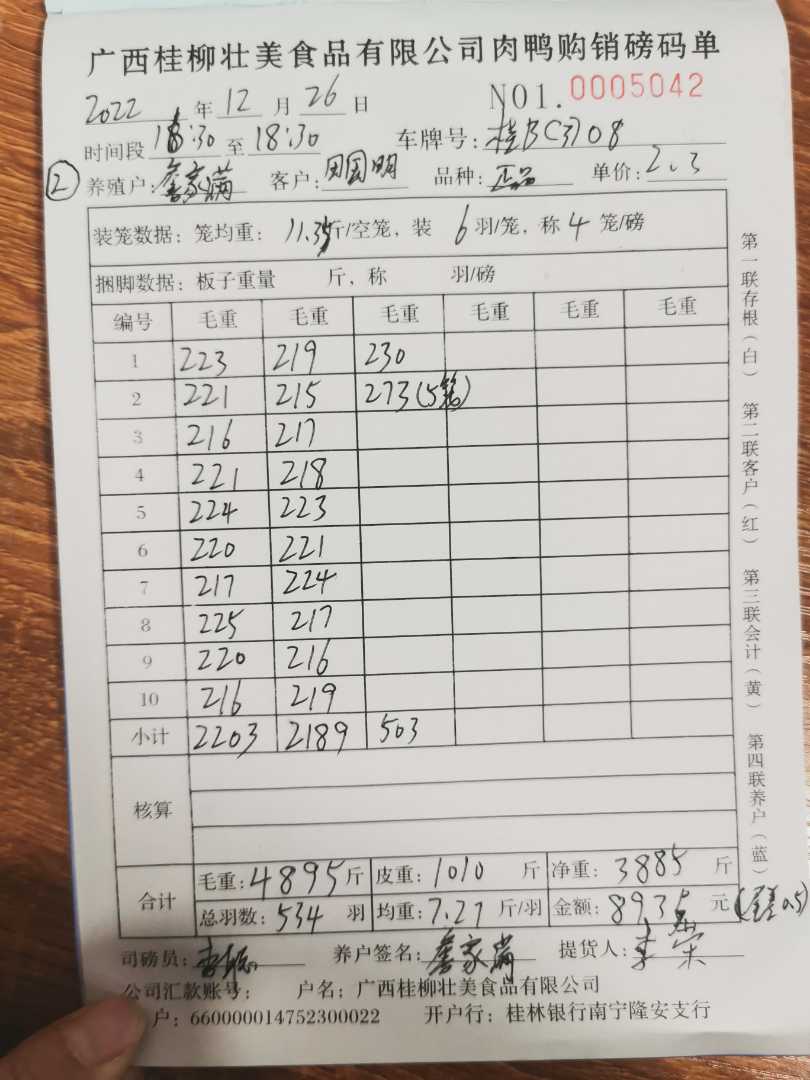 广西桂柳壮美食品有限公司肉鸭购销磅码单
2022 年 12 月 26 日 NO1. 0005042
时间段 18:30 至 18:30 车牌号: 桂B(3)08
② 养殖户: 詹家满 客户: 田国明 品种: 正品 单价: 2.3
装笼数据: 笼均重: 11.35斤/空笼, 装 6 羽/笼, 称 4 笼/磅
捆脚数据: 板子重量 斤, 称 羽/磅
编号 毛重 毛重 毛重 毛重 毛重 毛重
1 223 219 230
2 221 215 273(5笼)
3 216 217
4 221 218
5 224 223
6 220 221
7 217 224
8 225 217
9 220 216
10 216 219
小计 2203 2189 503
核算
合计
毛重: 4895 斤 皮重: 1010 斤 净重: 3885 斤
总羽数: 534 羽 均重: 7.27 斤/羽 金额: 8935 元
司磅员: 养户签名: 詹家满 提货人:
公司汇款账号: 户名: 广西桂柳壮美食品有限公司
户: 660000014752300022 开户行: 桂林银行南宁隆安支行
第一联存根(白) 第二联客户(红) 第三联会计(黄) 第四联养户(蓝)